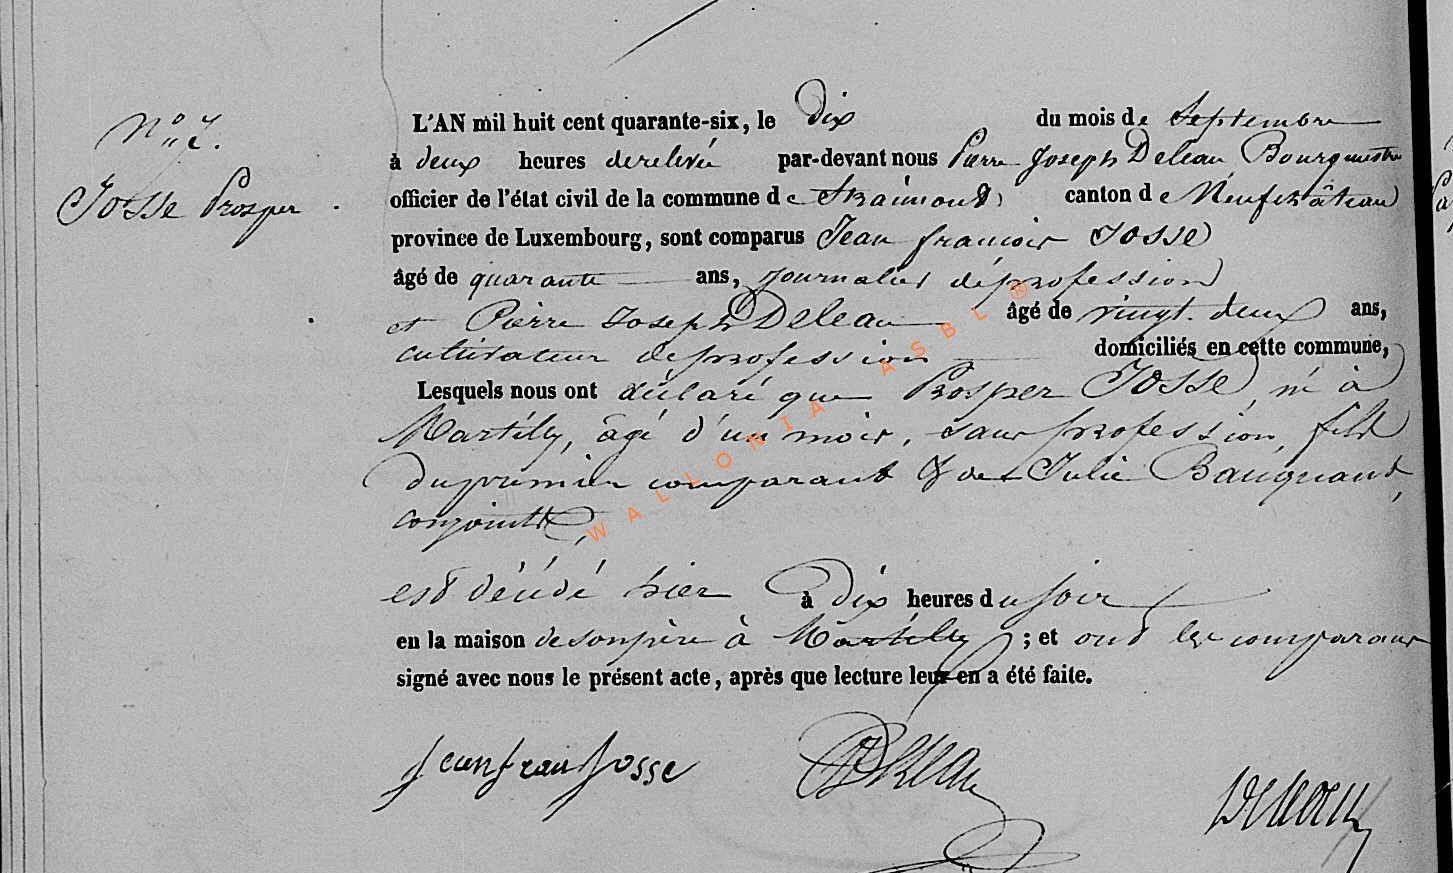 N° 7.
Josse Prosper
L'AN mil huit cent quarante-six, le dix du mois de Septembre
à deux heures de relevée par-devant nous Pierre Joseph Deleau Bourgmestre
officier de l'état civil de la commune de Straimont, canton de Neufchâteau
province de Luxembourg, sont comparus Jean françois Josse
âgé de quarante ans, journalier de profession
et Pierre Joseph Deleau âgé de vingt-deux ans,
cultivateur de profession domiciliés en cette commune,
Lesquels nous ont déclaré que Prosper Josse, né à
Martilly, âgé d'un mois, sans profession, fils
du premier comparant & de Julie Bauquant,
conjoints,
est décédé hier à dix heures du soir
en la maison de son père à Martilly ; et ont les comparans
signé avec nous le présent acte, après que lecture leur en a été faite.
jean fran josse Deleau Deleau
WALLONIA ASBL ®